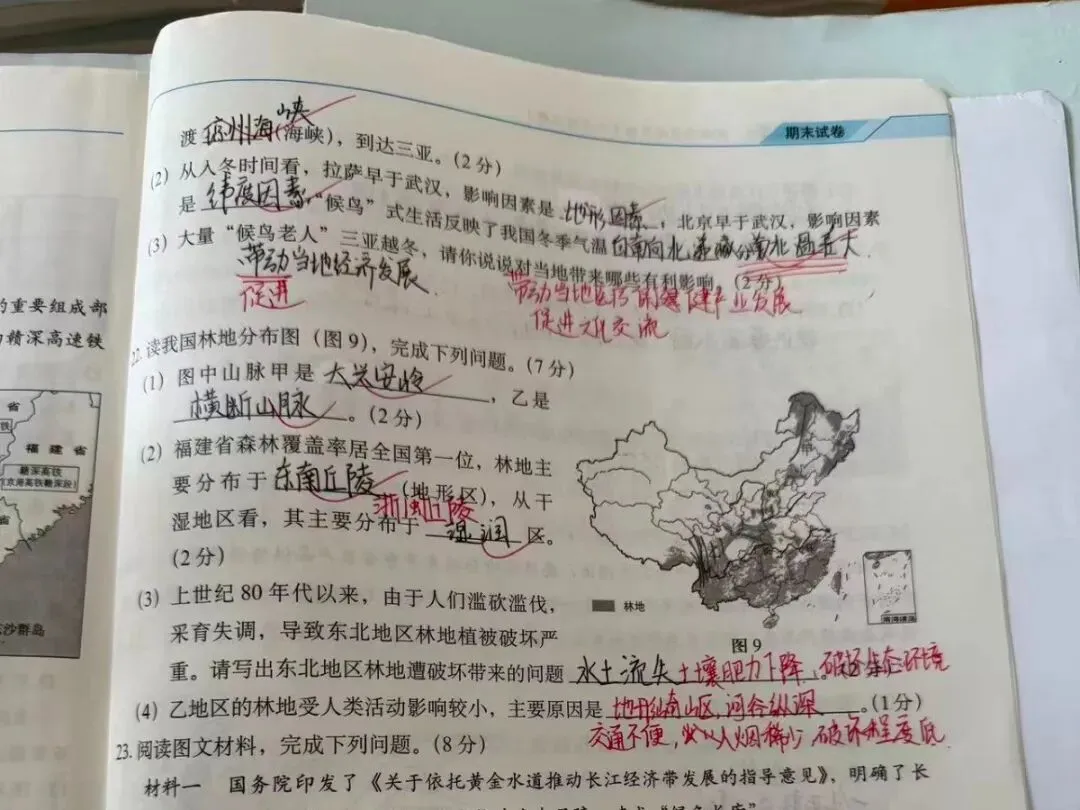 期末试卷
渡琼州海峡(海峡)，到达三亚。(2分)
(2) 从入冬时间看，拉萨早于武汉，影响因素是地形因素，北京早于武汉，影响因素
是纬度因素，“候鸟”式生活反映了我国冬季气温自南向北递减，南北温差大
(3) 大量“候鸟老人”三亚越冬，请你说说对当地带来哪些有利影响。(2分)
带动当地经济发展
促进
带动当地医疗保健产业发展
促进文化交流
22. 读我国林地分布图（图9），完成下列问题。(7分)
(1) 图中山脉甲是 大兴安岭，乙是
横断山脉。(2分)
(2) 福建省森林覆盖率居全国第一位，林地主
要分布于东南丘陵(地形区)，从干
浙闽丘陵
湿地区看，其主要分布于 湿润 区。
(2分)
(3) 上世纪80年代以来，由于人们滥砍滥伐，
采育失调，导致东北地区林地植被破坏严
重。请写出东北地区林地遭破坏带来的问题 水土流失 土壤肥力下降、破坏生态环境
(4) 乙地区的林地受人类活动影响较小，主要原因是 地形崎岖山区，河谷纵深。(1分)
交通不便，人烟稀少，破坏程度低
23. 阅读图文材料，完成下列问题。(8分)
材料一 国务院印发了《关于依托黄金水道推动长江经济带发展的指导意见》，明确了长
甲
林地
南海诸岛
图9
的重要组成部
赣深高速铁
省
福建省
赣深高铁
(京港高铁赣深段)
省
东沙群岛